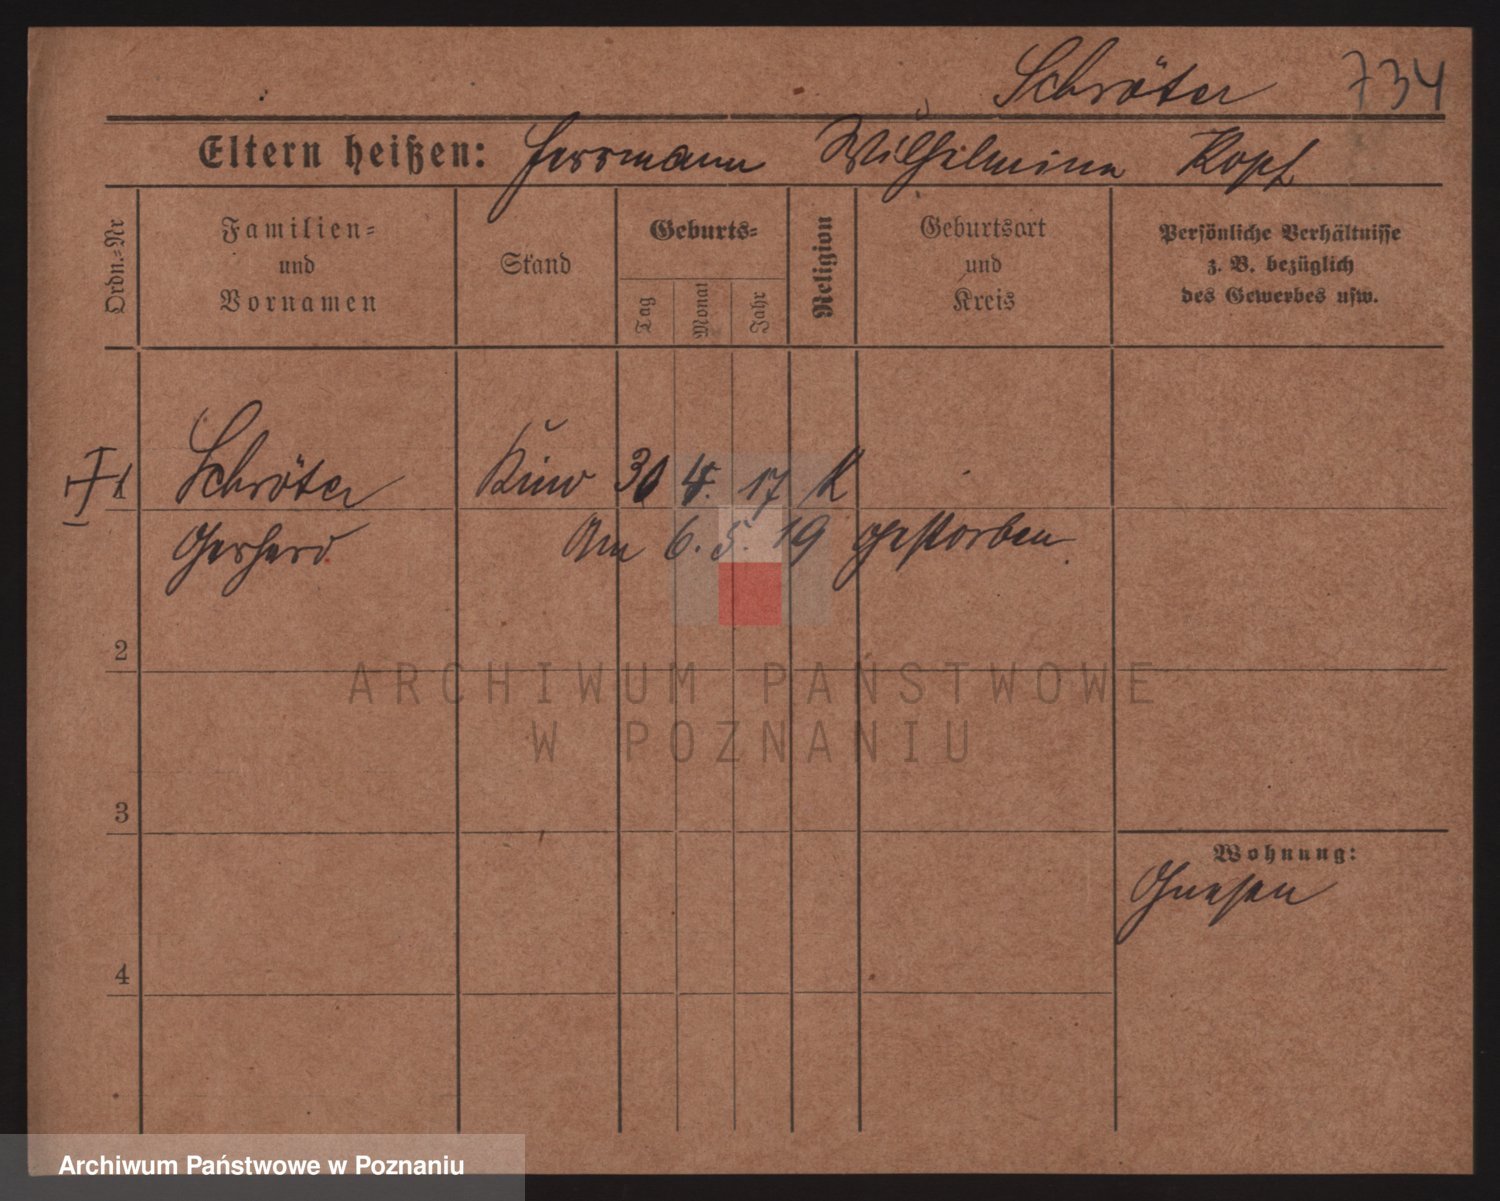 Schröter 734
Eltern heißen: Herrmann Wilhelmina Kopf
Ordn.-Nr
Familien-
und
Vornamen
Stand
Geburts-
Tag
Monat
Jahr
Religion
Geburtsort
und
Kreis
Persönliche Verhältnisse
z. B. bezüglich
des Gewerbes usw.
1 Schröter Kind 30 4. 17 K
Gerhard Am 6. 5. 19 gestorben.
2
ARCHIWUM PAŃSTWOWE
W POZNANIU
3
Wohnung:
Gnesen
4
Archiwum Państwowe w Poznaniu